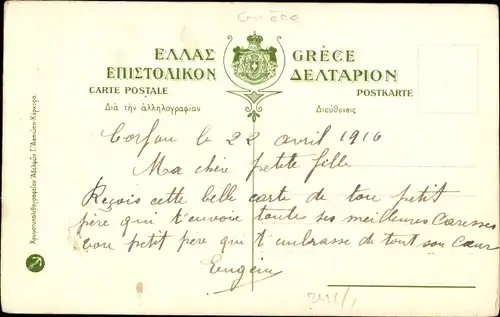 Grèce
ΕΛΛΑΣ GRÈCE
ΕΠΙΣΤΟΛΙΚΟΝ ΔΕΛΤΑΡΙΟΝ
CARTE POSTALE POSTKARTE
Διὰ τὴν ἀλληλογραφίαν Διεύθυνσις
Corfou le 22 avril 1916
Ma chère petite fille
Reçois cette belle carte de ton petit
père qui t'envoie toutes ses meilleures Caresses
ton petit père qui t'embrasse de tout son Cœur
Eugène
Χρωμοτυπολιθογραφεῖον Ἀδελφῶν Γ. Ἀσπιώτη-Κέρκυρα